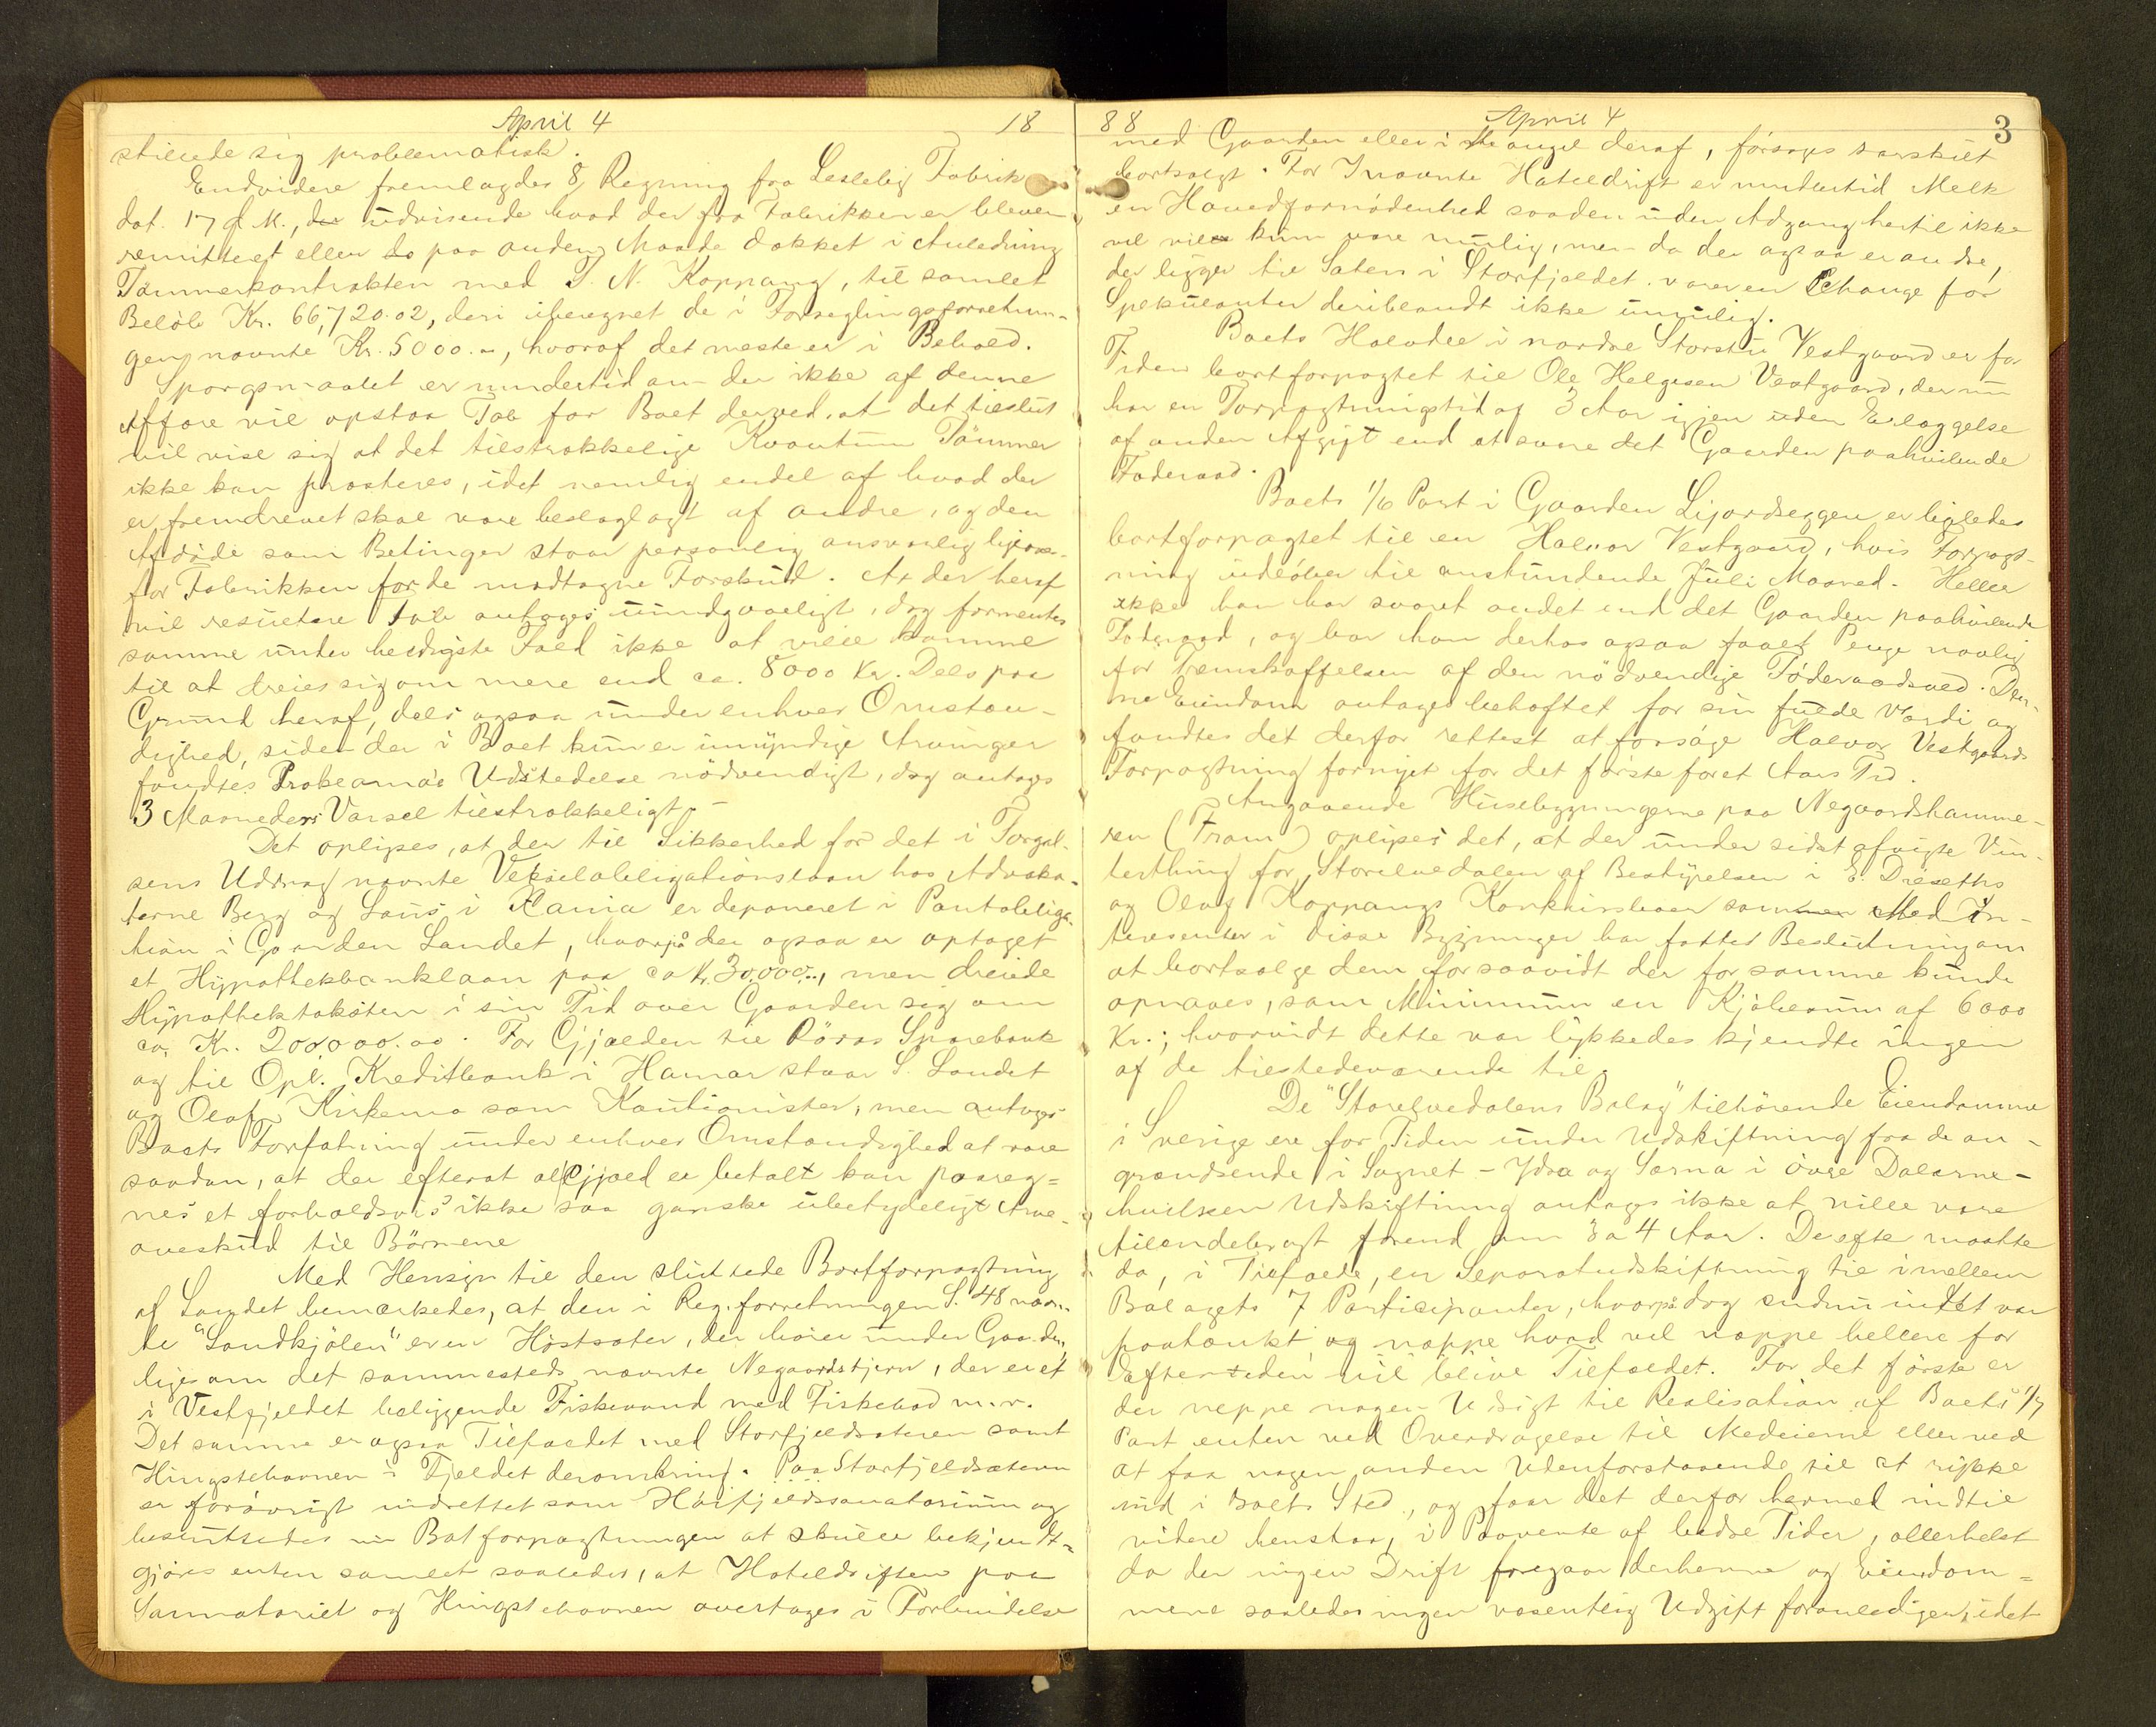 April 4 18
stillede sig problematisk.
Endvidere fremlagdes 8 Regning fra Lesleby Fabrik
dat. 17 d. M., der udvisende hvad der fra Fabrikken er bleven
remitteret eller do paa anden Maade dækket i Anledning
Tømmerkontrakten med T. N. Koppang, til samlet
Beløb Kr. 66,720.02, deri iberegnet de i Forseglingsforretnin-
gen nævnte Kr. 5000.-, hvoraf det meste er i Behold.
Spørgsmaalet er imidlertid om der ikke af denne
Affære vil opstaa Tab for Boet derved, at det tilslut
vil vise sig at det tilstrækkelige Kvantum Tømmer
ikke kan præsteres, idet nemlig endel af hvad der
er fremdrevet skal være beslaglagt af andre, og den
Afdøde som Betinger staar personlig ansvarlig ligeover-
for Fabrikken for de modtagne Forskud. At der heraf
vil resultere Tab antages uundgaaeligt, dog formentes
samme under heldigste Fald ikke at ville komme
til at dreie sig om mere end ca. 8000 Kr. Dels paa
Grund heraf, dels ogsaa under enhver Omstæn-
dighed, siden der i Boet kun er umyndige Arvinger
fandtes Proklama's Udstedelse nødvendigt, dog antages
3 Maaneders Varsel tilstrækkeligt.-
Det oplyses, at der til Sikkerhed for det i Torgal-
sens Uddrag nævnte Vekselobligationslaan hos Advoka-
terne Berg og Lous i Kania er deponeret i Pantobliga-
tion i Gaarden Landet, hvorpå der ogsaa er optaget
et Hypothekbanklaan paa ca Kr. 30.000.-, men dreiede
Hypothektaksten i sin Tid over Gaarden sig om
ca. Kr. 200000.00. For Gjælden til Röros Sparebank
og til Opl. Kreditbank i Hamar staar S. Landet
og Olaf Kirkemo som Kautionister, men antages
Boets Forfatning under enhver Omstændighed at være
saadan, at der efterat al Gjæld er betalt kan paareg=
nes et forholdsvis ikke saa ganske ubetydeligt Arve-
overskud til Börnene
Med Hensyn til den sluttede Bortforpagtning
af Landet bemærkedes, at den i Reg. forretningen S. 48 nævn-
te "Landkjølen" er en Høstsæter, der hører under Gaarden,
ligesom det sammesteds nævnte Negaardstjern, der er et
i Vestfjeldet beliggende Fiskevand med Fiskebod m.v.
Det samme er ogsaa Tilfældet med Storfjeldsæteren samt
Hingstehavnen i Fjeldet deromkring. Paa Storfjeldsæteren
er forøvrigt indrettet som Höifjeldssanatorium og
besluttedes nu Bortforpagtningen at skulle bekjendt=
gjøres enten samlet saaledes, at Hoteldriften paa
Sanatoriet og Hingstehavnen overtages i Forbindelse
88 April 4 3
med Gaarden eller i Mangel deraf, forsøges særskilt
bortsolgt. For Inævnte Hoteldrift er imidlertid Melk
en Hovedfornødenhed saaden uden Adgang hertil ikke
vel vil kun være mulig, men da der ogsaa er andre,
der ligger til Sæters i Storfjældet. var en Change for
Spekulanter deriblandt ikke umulig.
Boets Halvdel i nordre Storstu Vestgaard er for
Tiden bortforpagtet til Ole Helgesen Vestgaard, der nu
har en Forpagtningstid af 3 Aar igjen uden Erlæggelse
af anden Afgift end at svare det Gaarden paahvilende
Føderaad.
Boets 1/6 Part i Gaarden Lijordseggen er ligeledes
bortforpagtet til en Halvor Vestgaard, hvis Forpagt-
ning udløber til anstundende Juli Maaned. Heller
ikke han har svaret andet end det Gaarden paahvilende
Føderaad, og har han derhos ogsaa faaet Penge
for Fremskaffelsen af den nödvendige Föderaadsved. Den-
ne Eiendom antages behæftet for sin fulde Værdi og
fandtes det derfor rettest at forsøge Halvor Vestgaards
Forpagtning fornyet for det første for et Aars Tid.
Angaaende Husebygningerne paa Negaardshamme-
ren (Fram) oplyses det, at der under sidst afvigte Vin-
terthing for Storelvedalen af Bestyrelsen i E. Dræseths
og Olaf Koppangs Konkursboer som Med In-
teressenter i disse Bygninger har fattet Beslutning om
at bortsælge dem forsaavidt der for samme kunde
opnaaes, som Minimum en Kjøbesum af 6000
Kr.; hvorvidt dette var lykkedes kjendte ingen
af de tilstedeværende til.
De "Storelvedalens Bolag" tilhörende Eiendomme
i Sverige ere for Tiden under Udskiftning fra de an-
grændsende i Sognet - Ydra og Särna i övre Dalarne-
hvilken Udskiftning antages ikke at ville være
tilendebragt førend om 3 a 4 Aar. Derefter maatte
da, i Tilfælde, en Separatudskiftning til imellem
Bolagets 7 Participanter, hvorpå dog endnu intet var
paatænkt og næppe hvad vel næppe hellere for
Eftertiden vil blive Tilfældet. For det første er
der neppe nogen Udsigt til Realisation af Boets 1/7
Part enten ved Overdragelse til Medeierne eller ved
at faa nogen anden Udenforstaaende til at rykke
ind i Boets Sted, og faar det derfor hermed indtil
videre henstaa, i Paavente af bedre Tider, allerhelst
da der ingen Drift foregaar derhenne og Eiendom=
mene saaledes ingen væsentlig Udgift foranlediger, idet